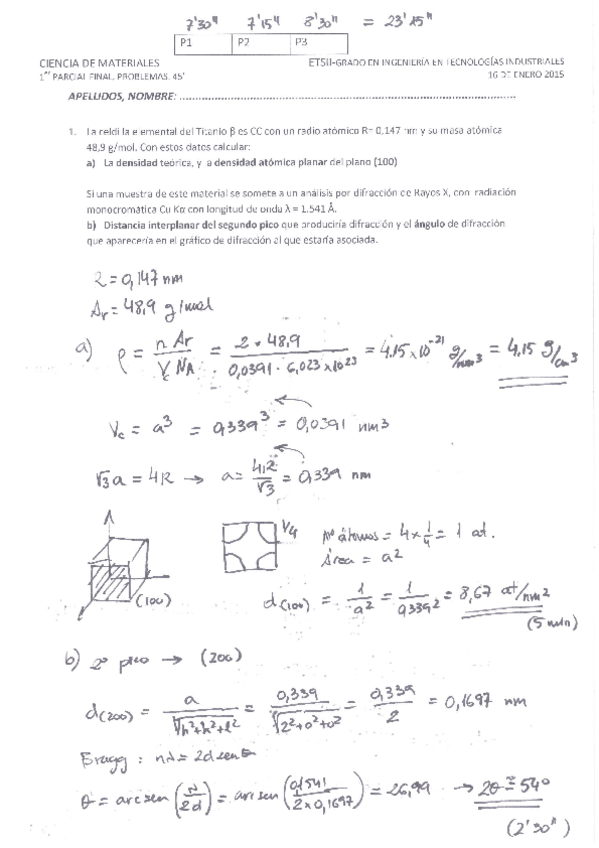 7'30" 7'15" 8'30" = 23'15"
P1 P2 P3
CIENCIA DE MATERIALES ETSII-GRADO EN INGENIERÍA EN TECNOLOGÍAS INDUSTRIALES
1er PARCIAL FINAL. PROBLEMAS. 45' 16 DE ENERO 2015
APELLIDOS, NOMBRE: ........................................................................................
1. La celdilla elemental del Titanio β es CC con un radio atómico R= 0,147 nm y su masa atómica
48,9 g/mol. Con estos datos calcular:
a) La densidad teórica, y la densidad atómica planar del plano (100)
Si una muestra de este material se somete a un análisis por difracción de Rayos X, con radiación
monocromática Cu Kα con longitud de onda λ = 1.541 Å.
b) Distancia interplanar del segundo pico que produciría difracción y el ángulo de difracción
que aparecería en el gráfico de difracción al que estaría asociada.
R = 0,147 nm
Ar = 48,9 g/mol
a) ρ = n Ar / Vc NA = 2 * 48,9 / 0,0391 · 6,023 x 10^23 = 4,15 x 10^-21 g/nm3 = 4,15 g/cm3
Vc = a^3 = 0,339^3 = 0,0391 nm3
√3 a = 4R → a = 4R / √3 = 0,339 nm
1/4 nº átomos = 4 x 1/4 = 1 at.
Área = a^2
(100) d(100) = 1 / a^2 = 1 / 0,339^2 = 8,67 at/nm2
(5 min)
b) 2º pico → (200)
d(200) = a / √(h^2+k^2+l^2) = 0,339 / √(2^2+0^2+0^2) = 0,339 / 2 = 0,1697 nm
Bragg : nλ = 2d senθ
θ = arc sen (λ / 2d) = arc sen (0,1541 / 2 x 0,1697) = 26,99 → 2θ ≅ 54º
(2'30")